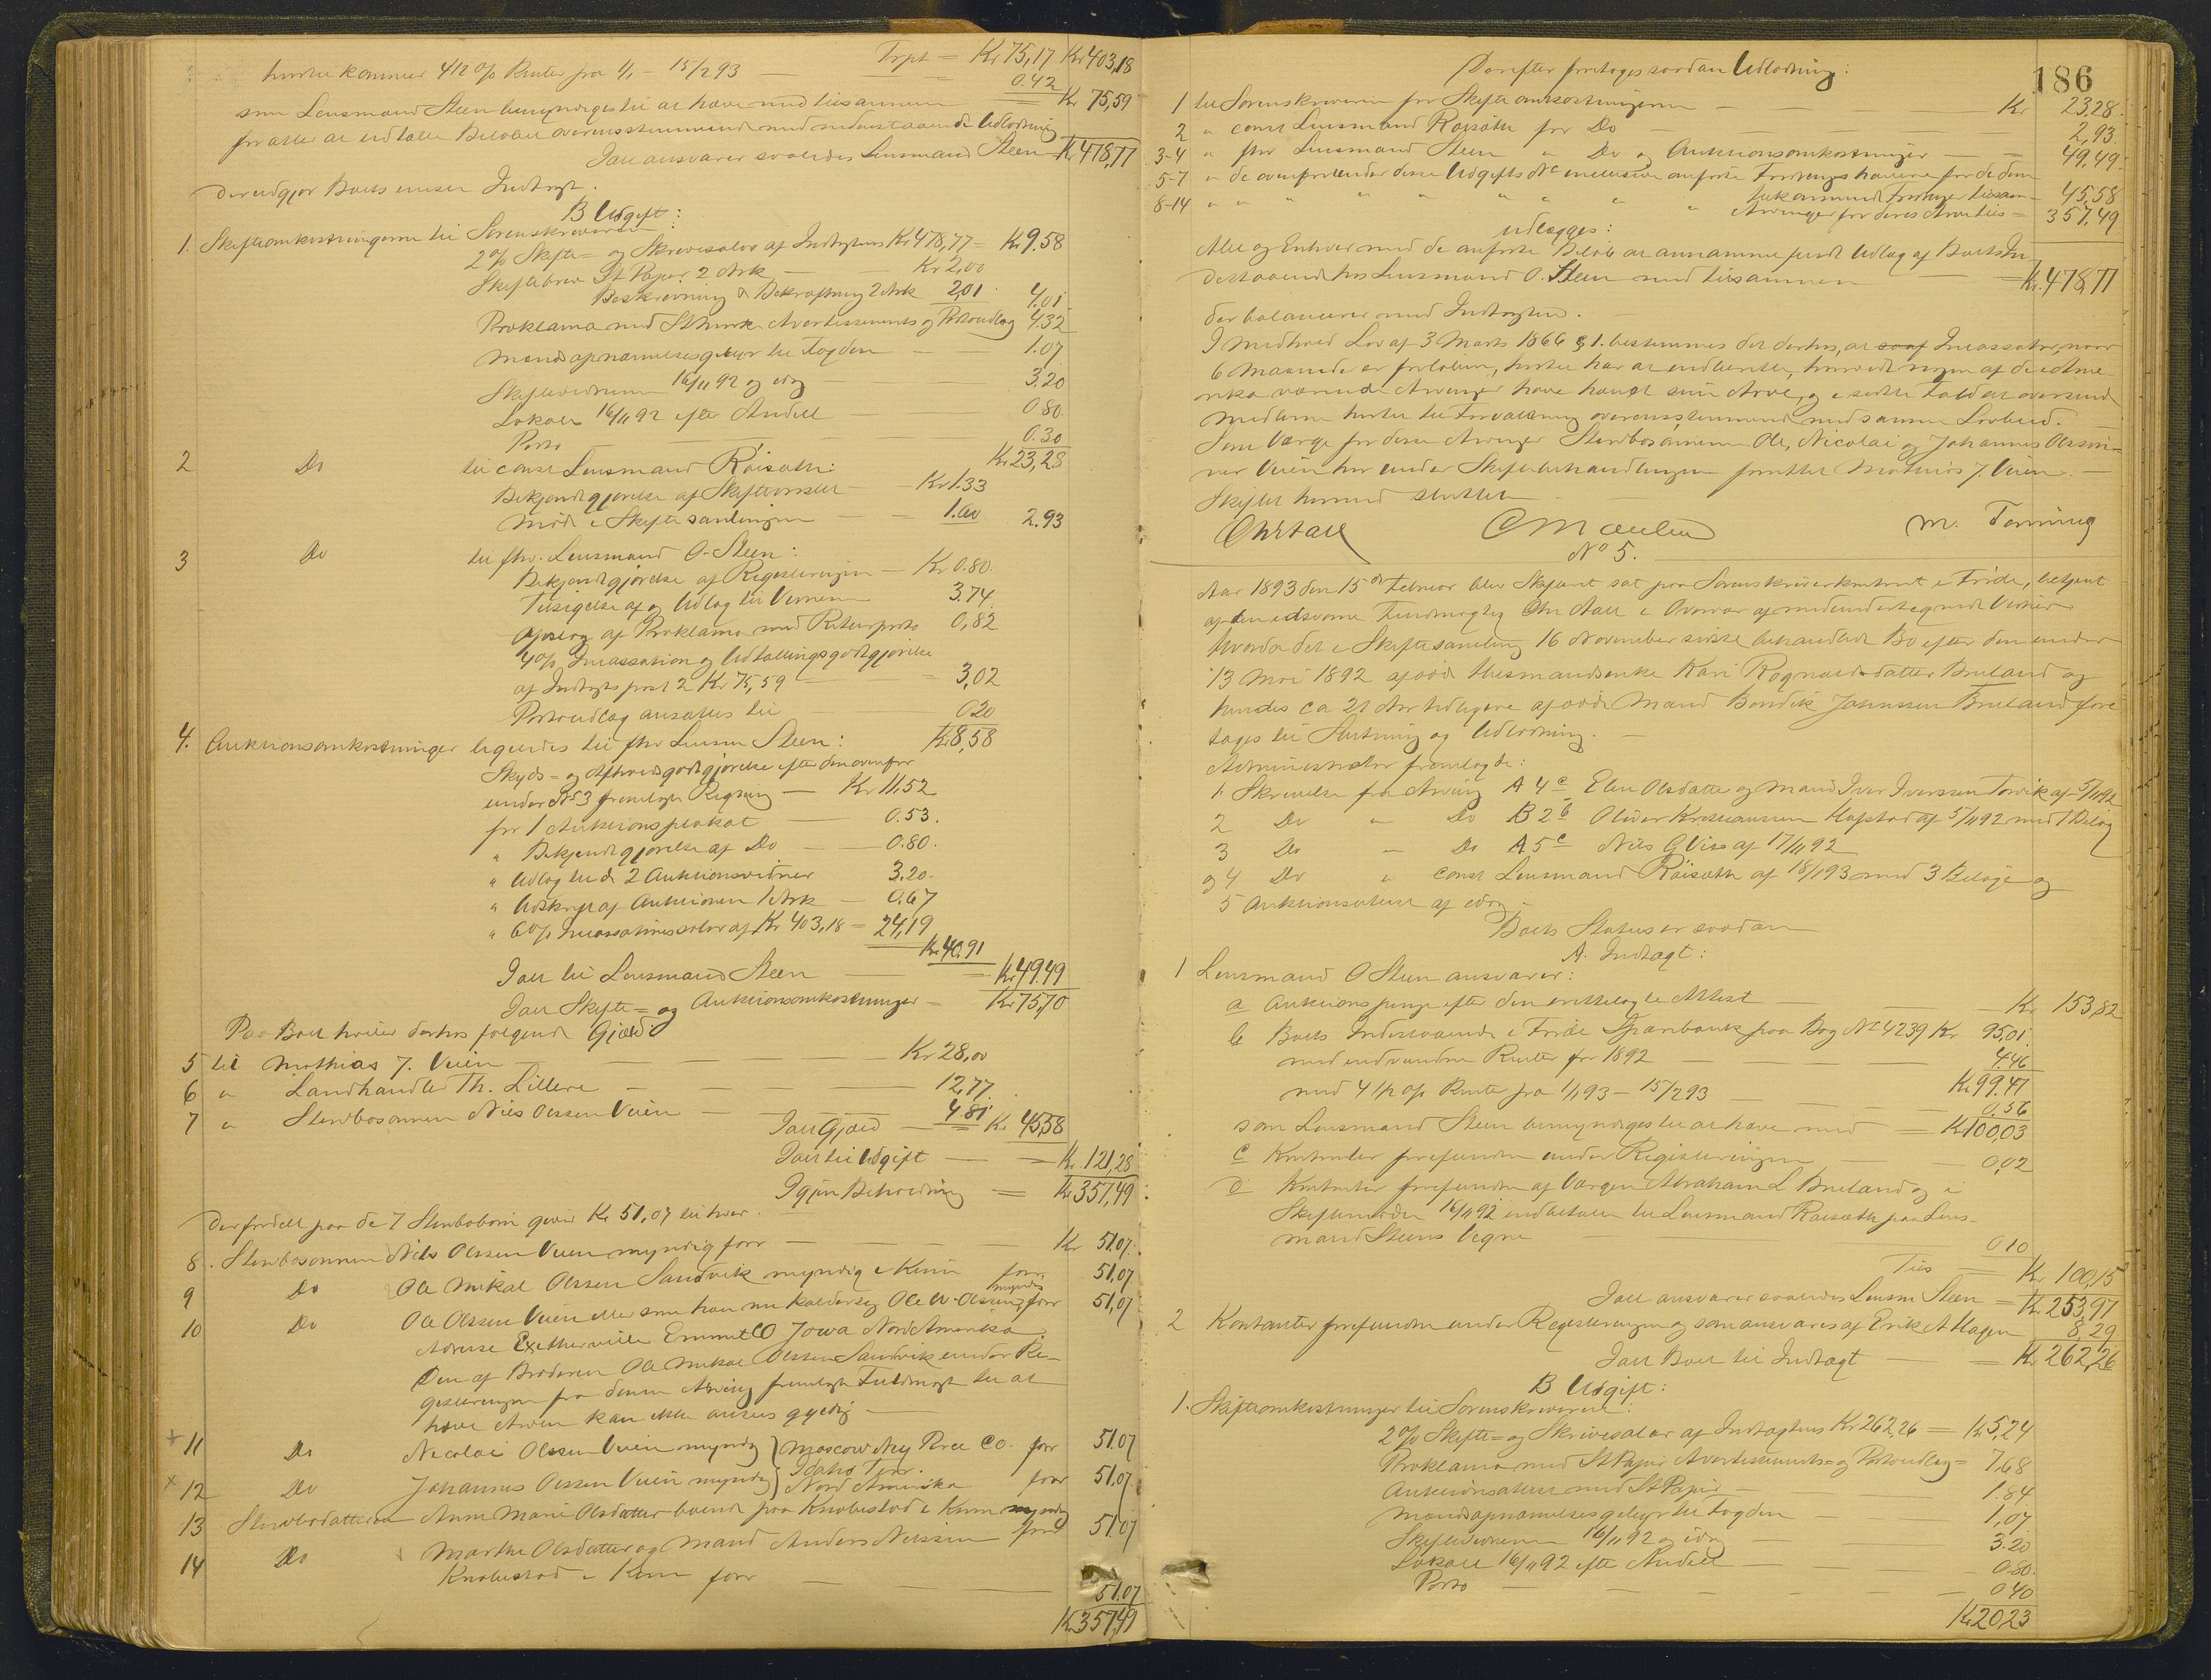 Trpt = Kr 75,17 Kr 403,18
hvortil kommer 4 1/2 % Renter fra 1/1 - 15/2 93 — = 0.42
som Lensmand Steen bemyndiges til at hæve med tilsammen = Kr 75,59
for atter at udbetale Beløbet overensstemmende med nedenstaaende Udlodning
Ialt ansvarer saaledes Lensmand Steen Kr 478,77
der udgjør Boets eneste Indtægt.
B Udgift:
1. Skifteomkostningerne til Sorenskriveren:
2 % Skifte- og Skriversalær af Indtægtens Kr 478,77 = Kr 9.58
Skiftebrev St Papir 2 Ark — Kr 2,00
Beskrivning & Bekræftning 2 Ark 2,01 4.01
Proklama med St Avertissements og Portoudlæg 4.32
Mandsopnævnelsesgebyr til Fogden — 1.07
Skiftevidnerne 16/11 92 og idag — 3.20
Lokale 16/11 92 efter Andel — 0.80.
Porto — 0.30
Kr 23,28
2 Do til const Lensmand Röisæth:
Bekjendtgjørelse af Skiftesamlet — Kr 1.33
Møde i Skiftesamlingen — 1.60 2.93
3 Do til fhv. Lensmand O. Steen:
Bekjendtgjørelse af Registreringen — Kr 0.80.
Tilsigelse af og Udlæg til Vidnerne 3.74.
Opslag af Proklama med Returporto 0,82
4 % Incassation og Udtællingsgodtgjørelse
af Indtægts post 2 Kr 75,59 — = 3,02
Portoudlæg ansættes til — 0.20
Kr 8,58
4. Auktionsomkostninger ligeledes til fhv Lensm Steen:
Skyds- og Aftholdsgodtgjørelse efter den ovenfor
under No 3 fremlagte Regning — Kr 11,52
for 1 Auktionsplakat — 0.53.
" Bekjendtgjørelse af Do — 0.80.
" Udlæg til de 2 Auktionsvidner 3.20.
" Udskrift af Auktionen 1 Ark — 0.67
" 6 % Incassationssalær af Kr 403,18 = 24,19
Kr 40,91
Ialt til Lensmand Steen — = Kr 49.49
Ialt Skifte- og Auktionsomkostninger = Kr 75,70
Paa Boet hviler derhos følgende Gjæld
5 til Mathias J. Veien — Kr 28,00
6 " Landhandler Th. Lillere — 12,77
7 " Stervbosønnen Nils Olssen Veien — 4 81
Ialt Gjæld — = Kr 45,58
Ialt til Udgift — = Kr. 121,28
Igjen Beholdning = Kr 357,49.
Der fordelt paa de 7 Stervbobørn giver Kr 51,07 til hver.
8. Stervbosønnen Nils Olssen Veien myndig for — Kr 51.07.
9 Do Ole Mikal Olssen Sandvik myndig i Kinn for 51.07.
10 Do Ole Olssen Veien eller som han nu kalder sig Ole W. Olsen myndig for 51,07
Adresse Estherville Emmet CO Jowa Nord Amerika.
Den af Broderen Ole Mikal Olssen Sandvik under Re-
gistreringen fra denne Arving fremlagte Fuldmagt til at
hæve Arven kan ikke ansees gyldig —
x 11 Do Nicolai Olssen Veien myndig } Moscow Nez Perce CO. for 51.07
x 12 Do Johannes Olssen Veien myndig } Idaho Terr. Nord Amerika for 51.07.
13 Stervbodatteren Anne Marie Olsdatter boende paa Knobestad i Kinn myndig for 51.07
14 Do Marthe Olsdatter og Mand Anders Nilssen
Knobestad i Kinn for — 51.07
Kr 357,49
186
Derefter foretoges saadan Udlodning:
1 til Sorenskriveren for Skifteomkostningerne — Kr 23,28.
2 " const Lensmand Röisæth for Do — 2,93.
3-4 " fhv Lensmand Steen " Do og Auktionsomkostninger — 49,49.
5-7 " de ovenfor under disse Udgifts No inclusive anførte Fordringshavere for de dem
tilkommende Fordringer tilsam 45,58
8-14 " " " " " " " " Arvinger for deres Arv tils = 357,49
udlægges:
Alle og Enhver med de anførte Beløb at annamme fuldt Udlæg af Boets In
destaaende hos Lensmand O. Steen med tilsammen — = Kr. 478,77
der balancerer med Indtægten.
I Medhold Lov af 3 Marts 1866 § 1. bestemmes det derhos, at Incassator, naar
6 Maaneder er forløbne, hertil har at indberette, hvorvidt nogen af de i Ame
rika værende Arvinger have hævet sin Arv, og i sidste Fald at oversende
Midlerne hertil til Forvaltning overensstemmende med samme Lovbud.
Som Værge for disse Arvinger Stervbosønnene Ole, Nicolai og Johannes Olssøn-
ner Veien har under Skiftebehandlingen fungeret Mathias J. Veien. —
Skiftet hermed sluttet
Chr Aall C M M. Tonning
No 5.
Aar 1893 den 15de Februar blev Skifteret sat paa Sorenskriverkontoret i Førde, betjent
af den edsvorne Fuldmægtig Chr Aall i Overvær af medundertegnede Vidner
hvorda det i Skiftesamling 16 November sidste behandlede Bo efter den under
13 Mai 1892 afdøde Husmandsenke Kari Rognaldsdatter Bruland og
hendes ca 21 Aar tidligere afdøde Mand Bendik Johnssen Bruland fore
toges til Slutning og Udlodning. —
Administrator fremlagde:
1. Skrivelse fra Arving A 4 c Elen Olsdatter og Mand Iver Iverssen Torvik af 5/11 92
2 Do " Do B 2 b Oliver Kristianssen Hopstad af 5/11 92 med 1 Bilag
3 Do " Do A 5 c Nils G Viss af 17/11 92
og 4 Do " const Lensmand Röisæth af 18/1 93 med 3 Bilage og
5 Auktionsattest af idag —
Boets Status er saadan
A. Indtægt:
1 Lensmand O Steen ansvarer:
a Auktionspenge efter den vedlagte Attest — Kr 153,82
b Boets Indestaaende i Førde Sparebank paa Bog No 4239 Kr 95,01.
med indvundne Renter for 1892 — 4.46
Kr 99.47
med 4 1/2 % Rente fra 1/1 93 - 15/2 93 — 0.56
som Lensmand Steen bemyndiges til at hæve med = Kr 100,03
c Kontanter forefundne under Registreringen — 0,02
d Kontanter forefundne af Værgen Abraham L Bruland og i
Skiftemødet 16/11 92 indbetalte til Lensmand Röisæth paa Lens-
mand Steens Vegne — 0 10
Tils = Kr 100,15
Ialt ansvarer saaledes Lensm Steen = Kr 253,97
2 Kontanter forefundne under Registreringen og som ansvares af Erik A Hagen 8,29
Ialt Boets til Indtægt — = Kr 262,26
B Udgift:
1. Skifteomkostninger til Sorenskriveren:
2 % Skifte- og Skriversalær af Indtægtens Kr 262,26 = Kr 5,24
Proklama med St Papir Avertissements- og Portoudlæg = 7,68
Auktionsattest med St Papir — 1.84.
Mandsopnævnelsesgebyr til Fogden — 1,07
Skiftevidnerne 16/11 92 og idag — 3.20
Lokale 16/11 92 efter Andel — 0.80.
Porto — 0 40
Kr 20,23